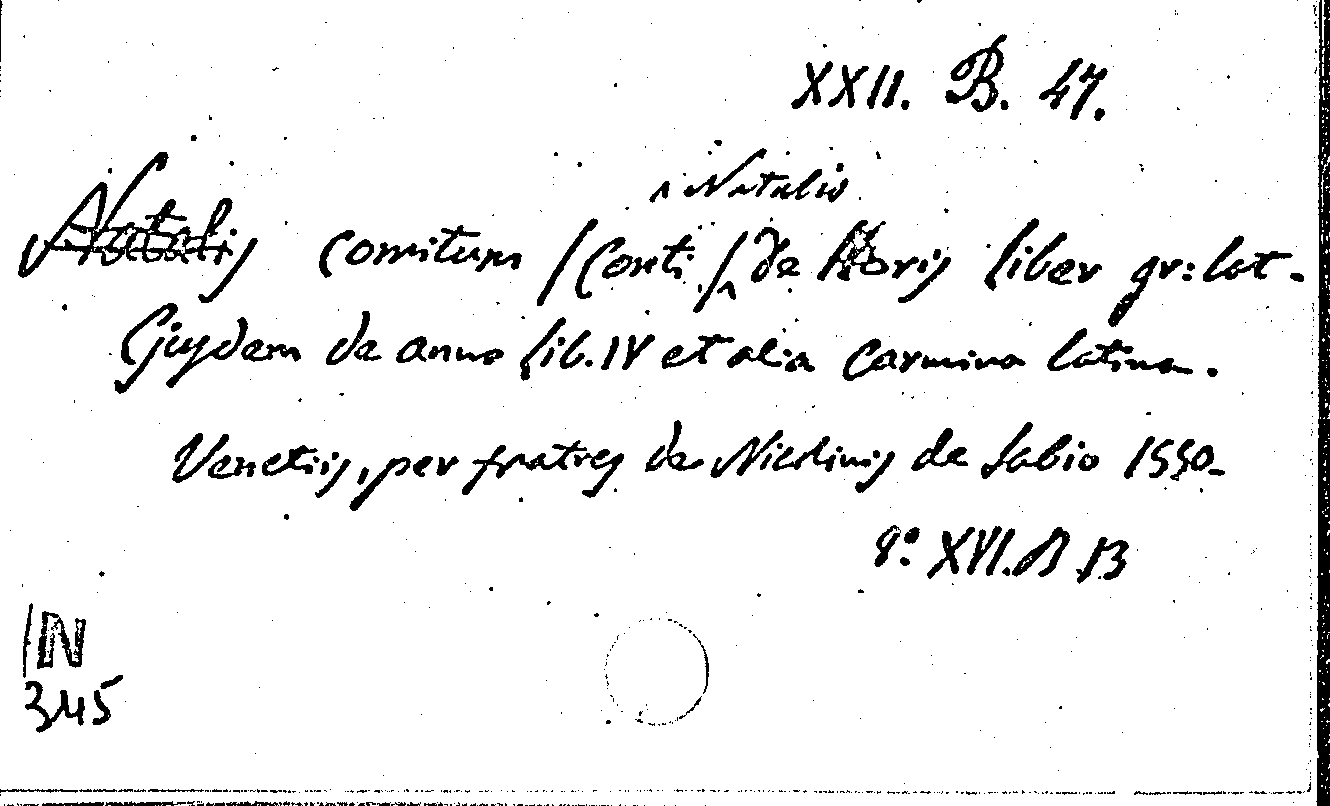 XXII. B. 47.
Natalis comitum /Conti/ ^ Natalis de Horis liber gr: lat.
Ejusdem de anno lib. IV et alia carmina latina.
Venetiis, per fratres de Nicolinis de Sabio 1550.
8° XVI. B
IN
345